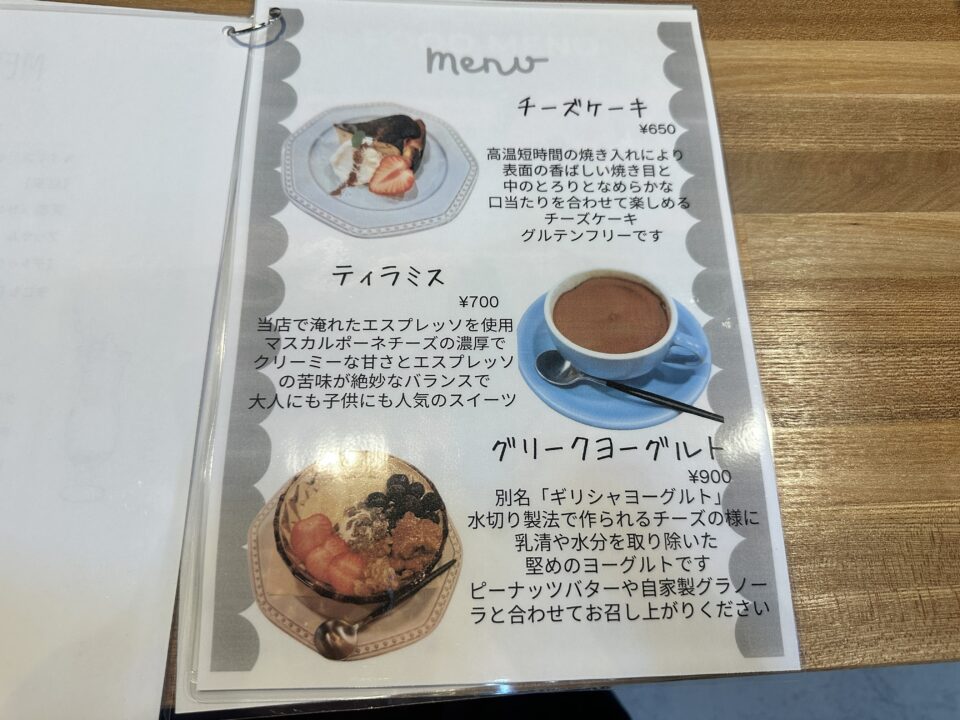 menu
チーズケーキ
¥650
高温短時間の焼き入れにより
表面の香ばしい焼き目と
中のとろりとなめらかな
口当たりを合わせて楽しめる
チーズケーキ
グルテンフリーです
ティラミス
¥700
当店で淹れたエスプレッソを使用
マスカルポーネチーズの濃厚で
クリーミーな甘さとエスプレッソ
の苦味が絶妙なバランスで
大人にも子供にも人気のスイーツ
グリークヨーグルト
¥900
別名「ギリシャヨーグルト」
水切り製法で作られるチーズの様に
乳清や水分を取り除いた
堅めのヨーグルトです
ピーナッツバターや自家製グラノー
ラと合わせてお召し上がりください